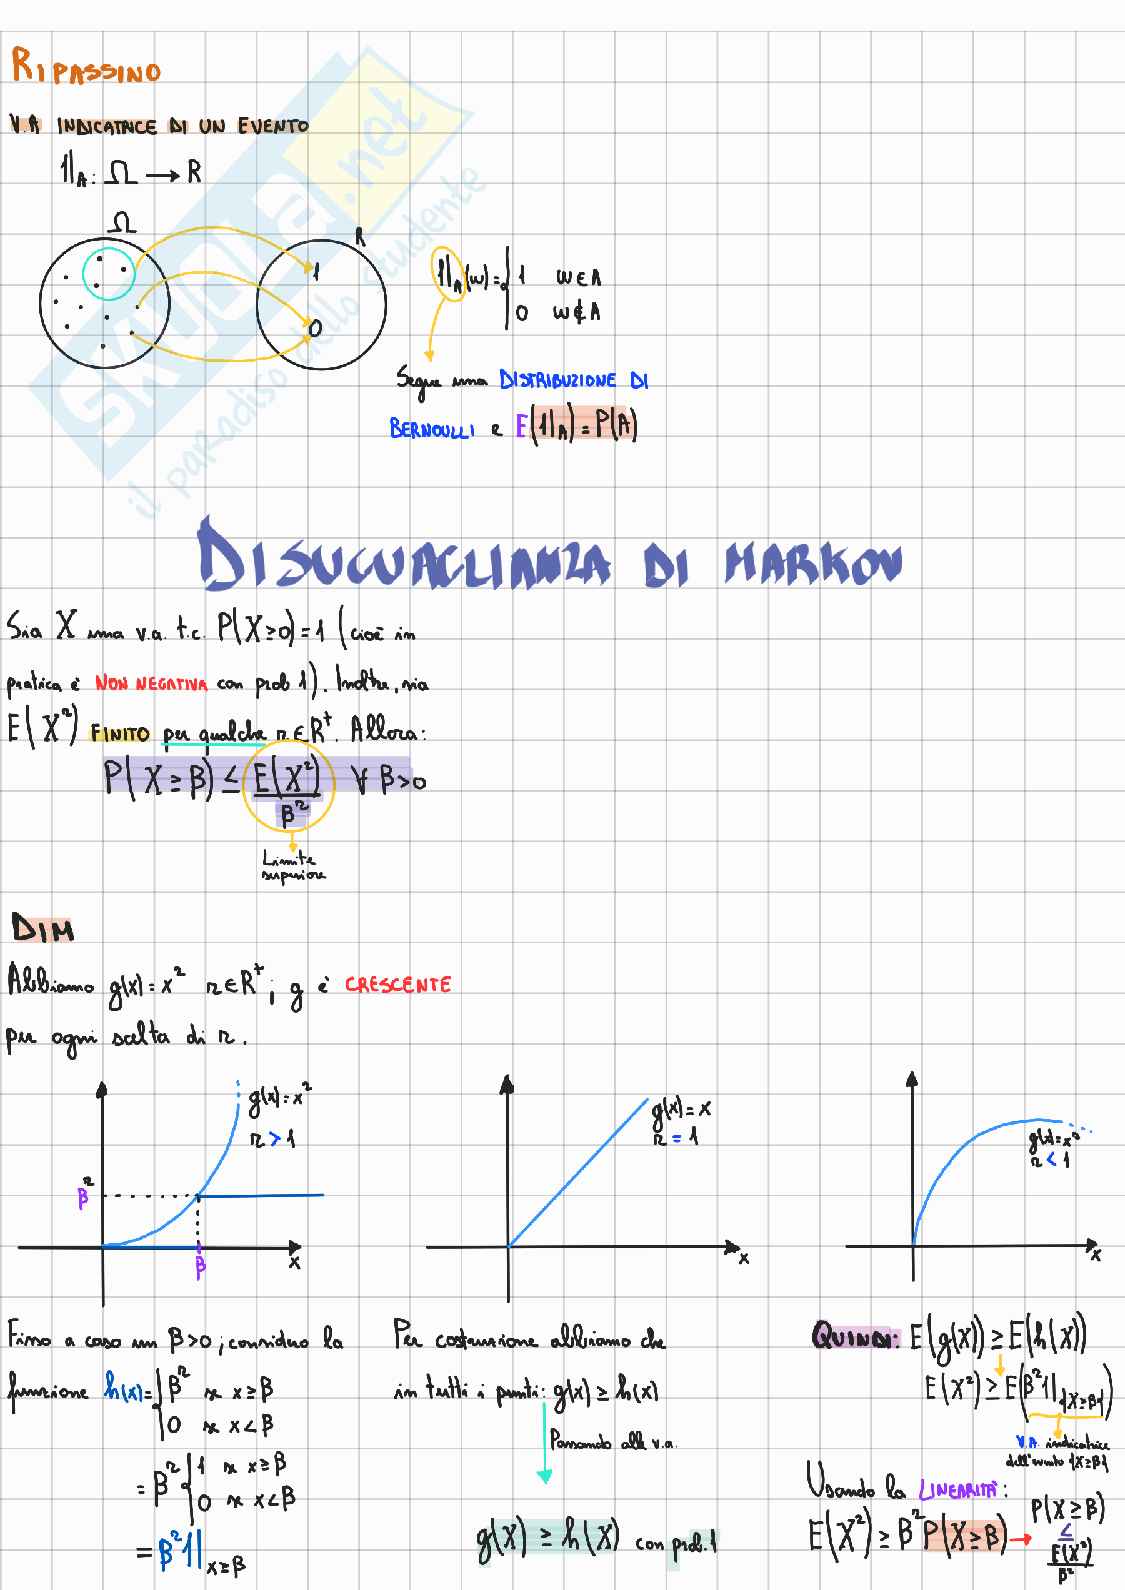 RIPASSINO
V.A INDICATRICE DI UN EVENTO
𝟙_A: Ω → R
Ω
R
1
0
𝟙_A(ω) = { 1 ω∈A
0 ω∉A
Segue una DISTRIBUZIONE DI
BERNOULLI e E(𝟙_A) = P(A)
SKUOLA.net
il paradiso dello studente
DISUGUAGLIANZA DI MARKOV
Sia X una v.a. t.c. P(X≥0)=1 (cioè in
pratica è NON NEGATIVA con prob 1). Inoltre, sia
E(X^r) FINITO per qualche r∈R⁺. Allora:
P(X≥β) ≤ E(X^r)/β^r ∀ β>0
Limite
superiore
DIM
Abbiamo g(x)=x^r r∈R⁺; g è CRESCENTE
per ogni scelta di r.
g(x)=x^r
r > 1
β^r
β
x
g(x)=x
r = 1
x
g(x)=x^r
r < 1
x
Fisso a caso un β>0; considero la
funzione h(x)= { β^r se x≥β
0 se x<β
= β^r { 1 se x≥β
0 se x<β
= β^r 𝟙_{x≥β}
Per costruzione abbiamo che
in tutti i punti: g(x) ≥ h(x)
Passando alle v.a.
g(X) ≥ h(X) con prob. 1
QUINDI: E(g(X)) ≥ E(h(X))
E(X^r) ≥ E(β^r 𝟙_{X≥β})
V.A. indicatrice
dell'evento {X≥β}
Usando la LINEARITÀ:
E(X^r) ≥ β^r P(X≥β) → P(X≥β)
≤
E(X^r)/β^r